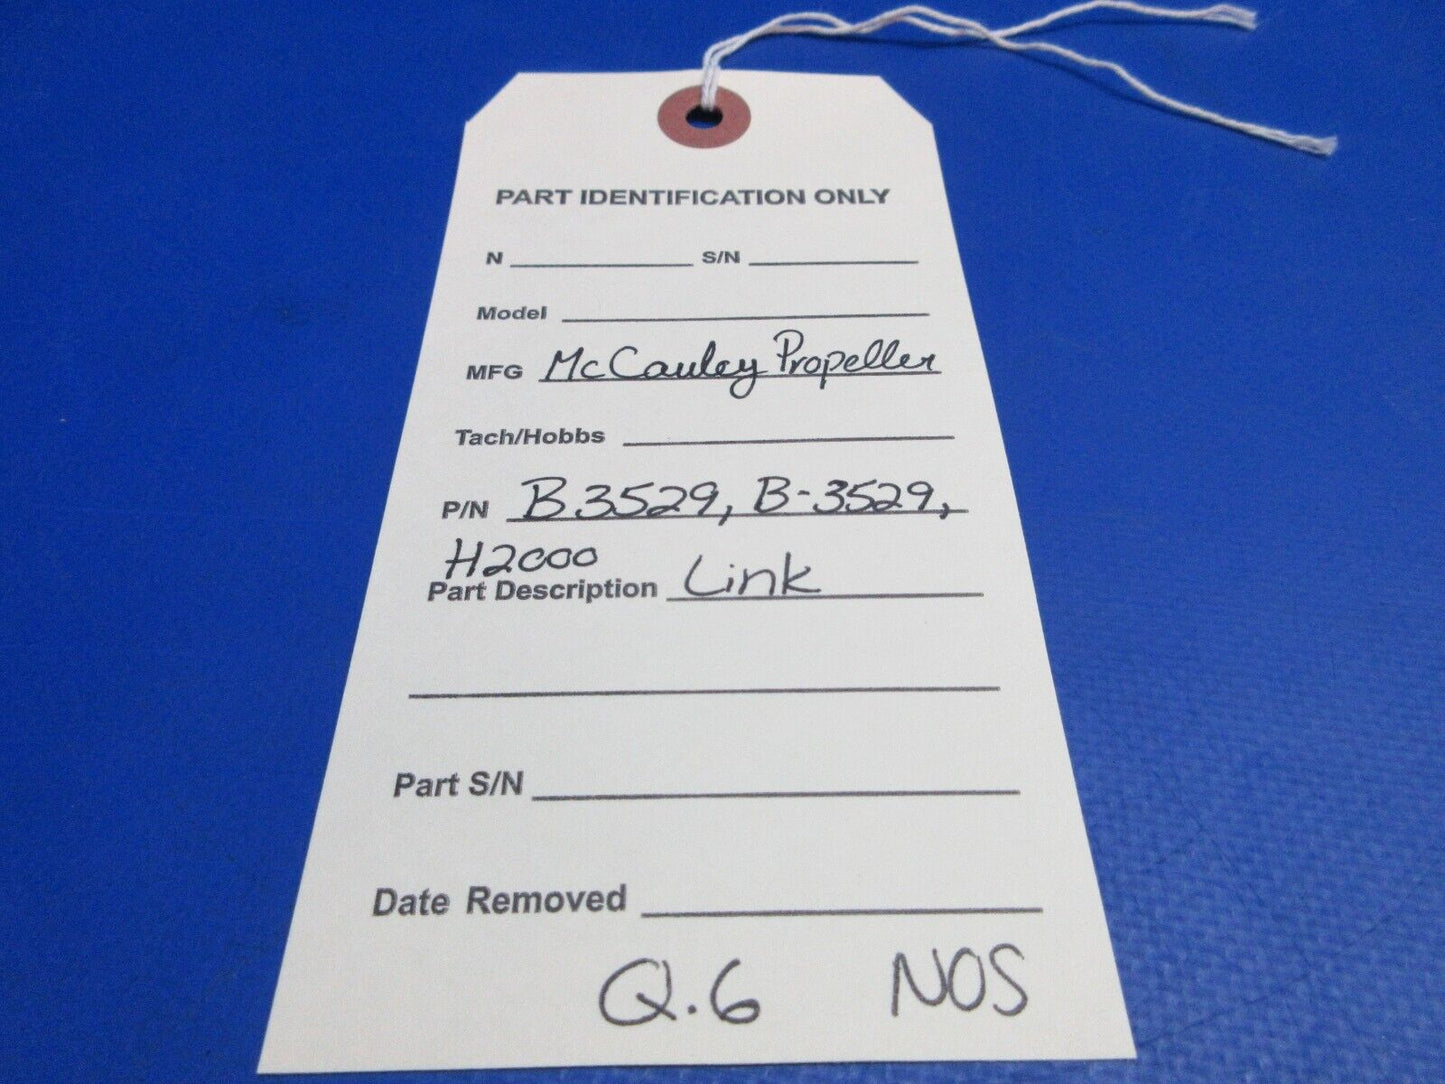 PART IDENTIFICATION ONLY
N S/N
Model
MFG McCauley Propeller
Tach/Hobbs
P/N B3529, B-3529,
H2000
Part Description Link
Part S/N
Date Removed
Q.6 NOS